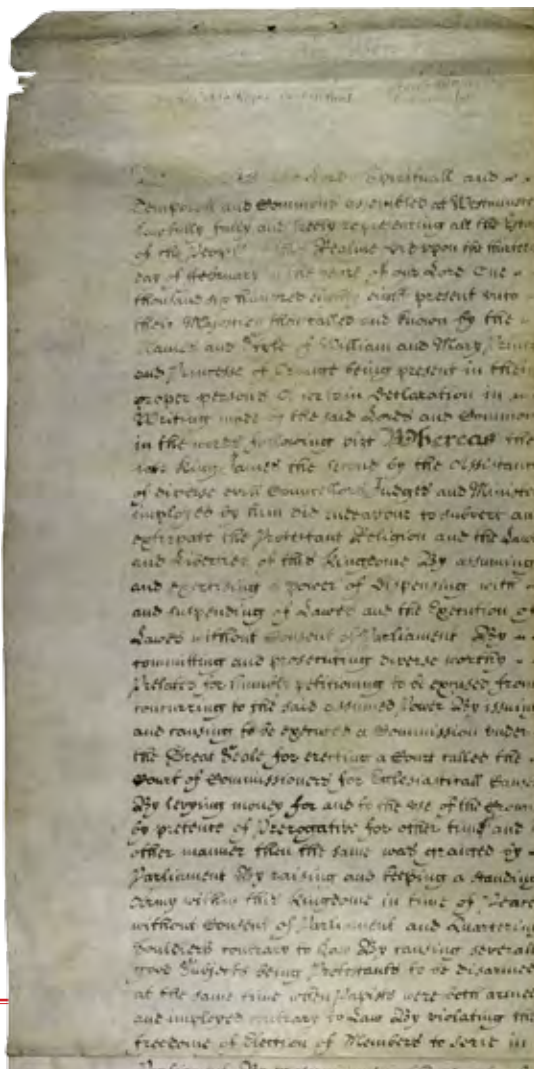 Lords Spirituall and
Temporall and Commons assembled at Westminster
Lawfully fully and freely representing all the Esta
of the People of this Realme did upon the thirtee
day of February in the yeare of our Lord One
thousand six hundred eighty eight present unto
their Majesties then called and known by the
Names and Stile of William and Mary Prince
and Princesse of Orange being present in their
proper persons a certain Declaration in
Writing made by the said Lords and Common
in the words following vizt Whereas the
late King James the second by the Assistance
of diverse evill Councellors Judges and Ministe
imployed by him did endeavour to subvert an
extirpate the Protestant Religion and the Laws
and Liberties of this Kingdome By assuming
and exercising a power of dispensing with
and suspending of Lawes and the Execution of
Lawes without Consent of Parliament By
committing and prosecuting diverse worthy
Prelates for humbly petitioning to be excused from
concurring to the said assumed Power By issuing
and causing to be executed a Commission under
the Great Seale for erecting a Court called the
Court of Commissioners for Ecclesiasticall Cause
By levying money for and to the use of the Crown
by pretence of Prerogative for other time and
other manner then the same was granted by
Parliament By raising and keeping a standing
Army within this Kingdome in time of Peace
without Consent of Parliament and Quartering
Souldiers contrary to Law By causing severall
good Subjects being Protestants to be disarmed
at the same time when Papists were both armed
and imployed contrary to Law By violating the
freedome of Election of Members to serve in